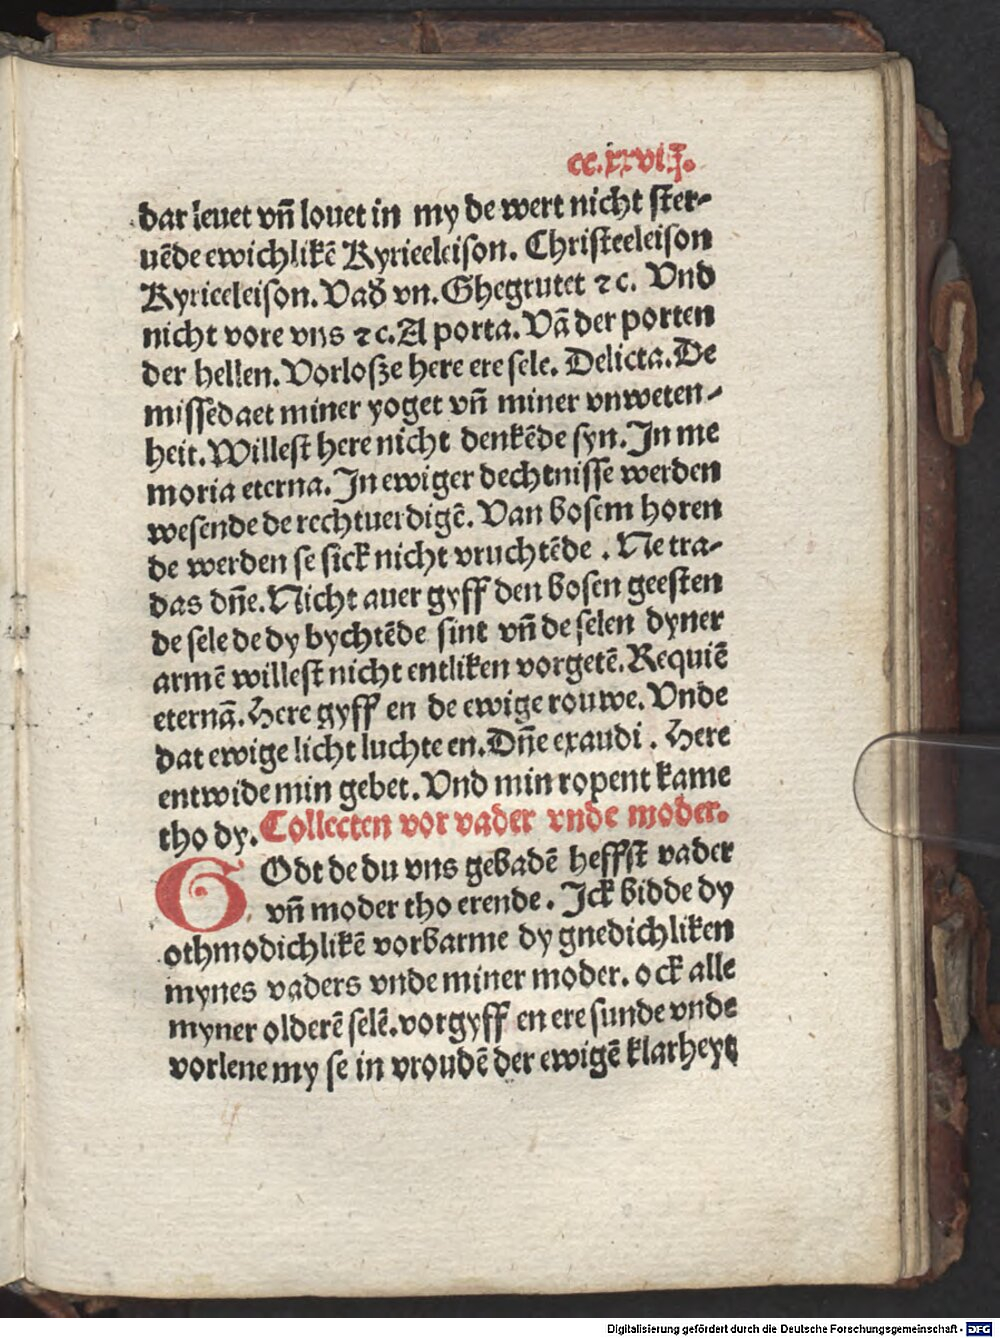 cc.xxvij.
dar leuet vñ louet in my de wert nicht ster-
uēde ewichlikē Kyrieeleison. Christeeleison
Kyrieeleison. Vad vn. Ghegrutet ⁊ c. Vnd
nicht vore vns ⁊ c. A porta. Vā der porten
der hellen. Vorlosze here ere sele. Delicta. De
missedaet miner yoget vñ miner vnweten-
heit. Willest here nicht denkēde syn. In me
moria eterna. In ewiger dechtnisse werden
wesende de rechtuerdigē. Van bosem horen
de werden se sick nicht vruchtēde. Ne tra-
das dñe. Nicht auer gyff den bosen geesten
de sele de dy bychtēde sint vñ de selen dyner
armē willest nicht entliken vorgetē. Requiē
eternā. Here gyff en de ewige rouwe. Vnde
dat ewige licht luchte en. Dñe exaudi. Here
entwide min gebet. Vnd min ropent kame
tho dy. Collecten vor vader vnde moder.
GOdt de du vns gebadē heffst vader
vñ moder tho erende. Ick bidde dy
othmodichlikē vorbarme dy gnedichliken
mynes vaders vnde miner moder. ock alle
myner olderē selē. vorgyff en ere sunde vnde
vorlene my se in vroudē der ewigē klarheyt
Digitalisierung gefördert durch die Deutsche Forschungsgemeinschaft - DFG